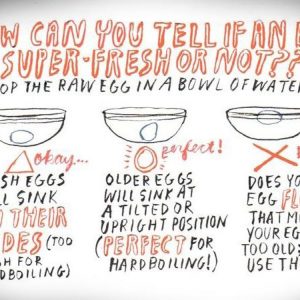 W CAN YOU TELL IF AN E
SUPER-FRESH OR NOT??
OP THE RAW EGG IN A BOWL OF WATER
okay...
SH EGGS
LL SINK
N THEIR
DES (TOO
SH FOR
RDBOILING)
perfect!
OLDER EGGS
WILL SINK AT
A TILTED OR
UPRIGHT POSITION
(PERFECT FOR
HARDBOILING!)
DOES YO
EGG FL
THAT M
YOUR E
TOO OLD
USE TH